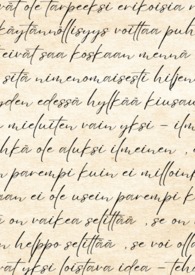 vät ole tarpeeksi erikoisia r
käytännöllisyys voittaa puh
eivät saa koskaan mennä
sitä nimenomaisesti hiljen
yden edessä hylkää kiusau
mieluiten vain yksi – ilm
hkä ole aluksi ilmeinen
parempi kuin ei milloink
aan ei ole usein parempi k
on vaikea selittää, se on
helppo selittää, se voi oll
vat yksi loistava idea – teh